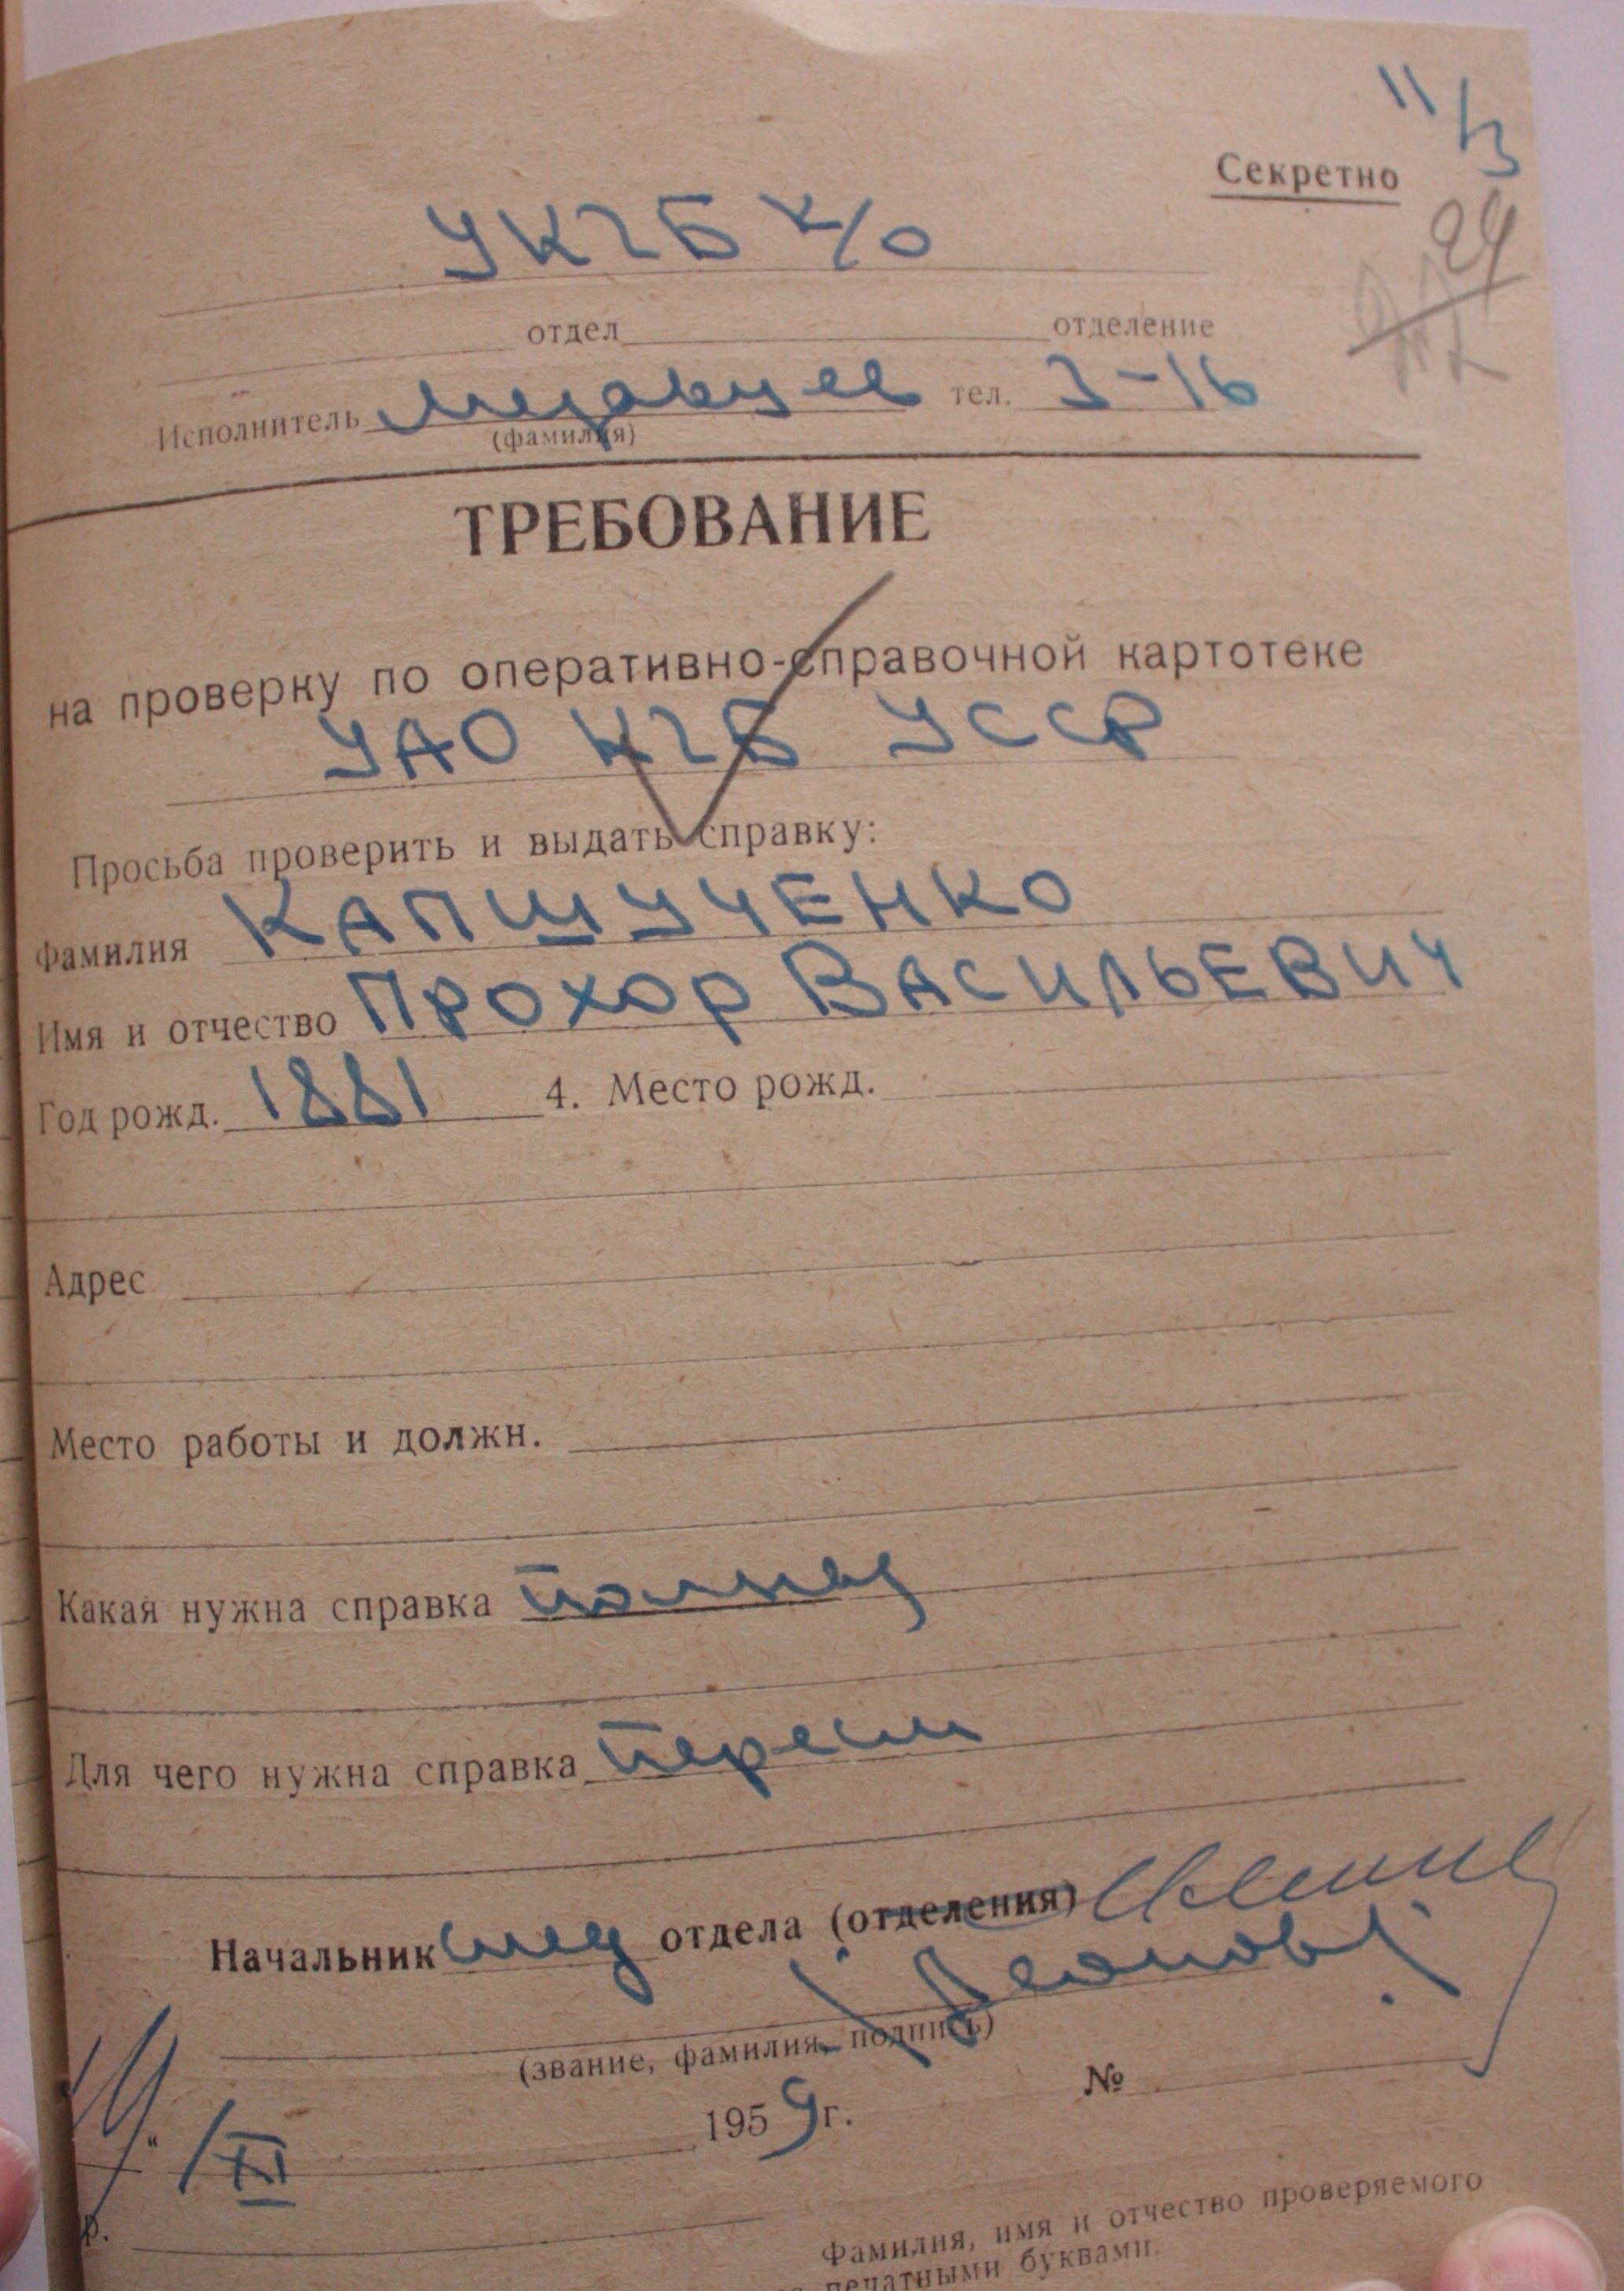 11/3
Секретно
УКГБ х/о
24
отдел отделение
Исполнитель тел. 3-16
(фамилия)
ТРЕБОВАНИЕ
на проверку по оперативно-справочной картотеке
УАО КГБ УССР
Просьба проверить и выдать справку:
Фамилия КАПШУЧЕНКО
Имя и отчество ПРОХОР ВАСИЛЬЕВИЧ
Год рожд. 1881 4. Место рожд.
Адрес
Место работы и должн.
Какая нужна справка полная
Для чего нужна справка
Начальник след отдела (отделения)
(Леонов)
(звание, фамилия, подпись)
1959 г. №
" /XI
р.
Фамилия, имя и отчество проверяемого
печатными буквами.